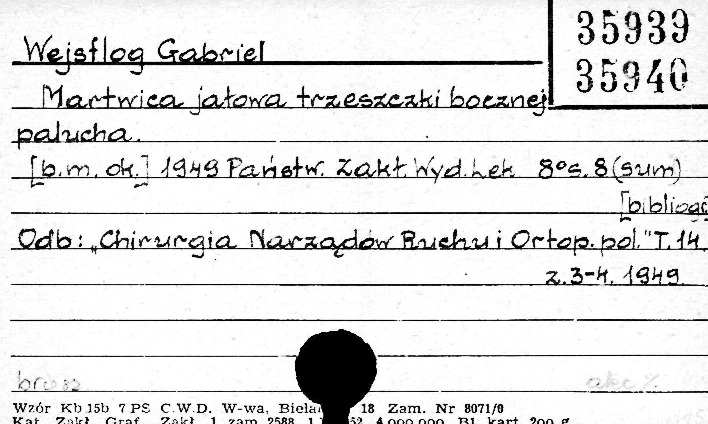 35939
35940
Wejsflog Gabriel
Martwica jałowa trzeszczki bocznej
palucha.
[b.m.ok.] 1949 Państw. Zakł. Wyd. Lek 8° s. 8 (sum)
[bibliogr
Odb: "Chirurgia Narządów Ruchu i Ortop. pol." T. 14
z. 3-4. 1949.
Wzór Kb 15b 7 PS C.W.D. W-wa, 18 Zam. Nr 8071/6
Kat. Zakł. Graf. Zakł. 1 zam 2588 4.000.000 Bl. kart. 200 g